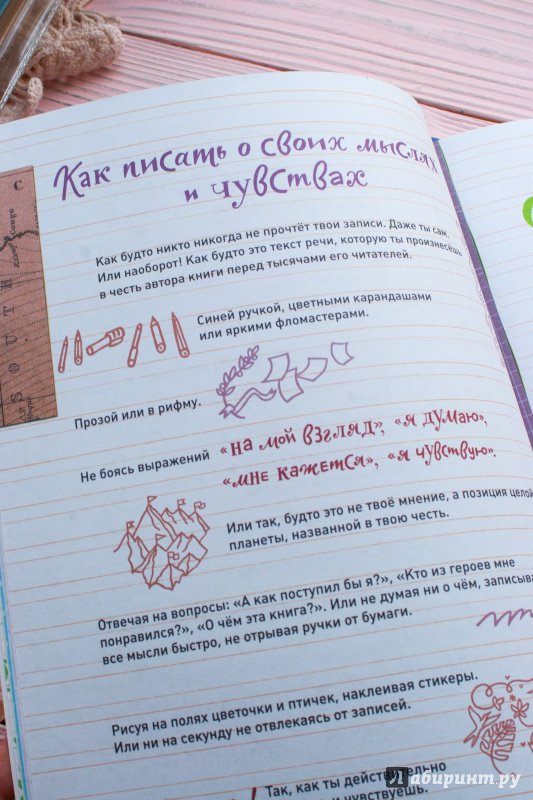 Как писать о своих мыслях
и чувствах
Как будто никто никогда не прочтёт твои записи. Даже ты сам.
Или наоборот! Как будто это текст речи, которую ты произнесёшь
в честь автора книги перед тысячами его читателей.
Синей ручкой, цветными карандашами
или яркими фломастерами.
Прозой или в рифму.
Не боясь выражений «на мой взгляд», «я думаю»,
«мне кажется», «я чувствую».
Или так, будто это не твоё мнение, а позиция целой
планеты, названной в твою честь.
Отвечая на вопросы: «А как поступил бы я?», «Кто из героев мне
понравился?», «О чём эта книга?». Или не думая ни о чём, записыва
все мысли быстро, не отрывая ручки от бумаги.
Рисуя на полях цветочки и птичек, наклеивая стикеры.
Или ни на секунду не отвлекаясь от записей.
Так, как ты действительно
и чувствуешь.
Лабиринт.ру
SOUTH